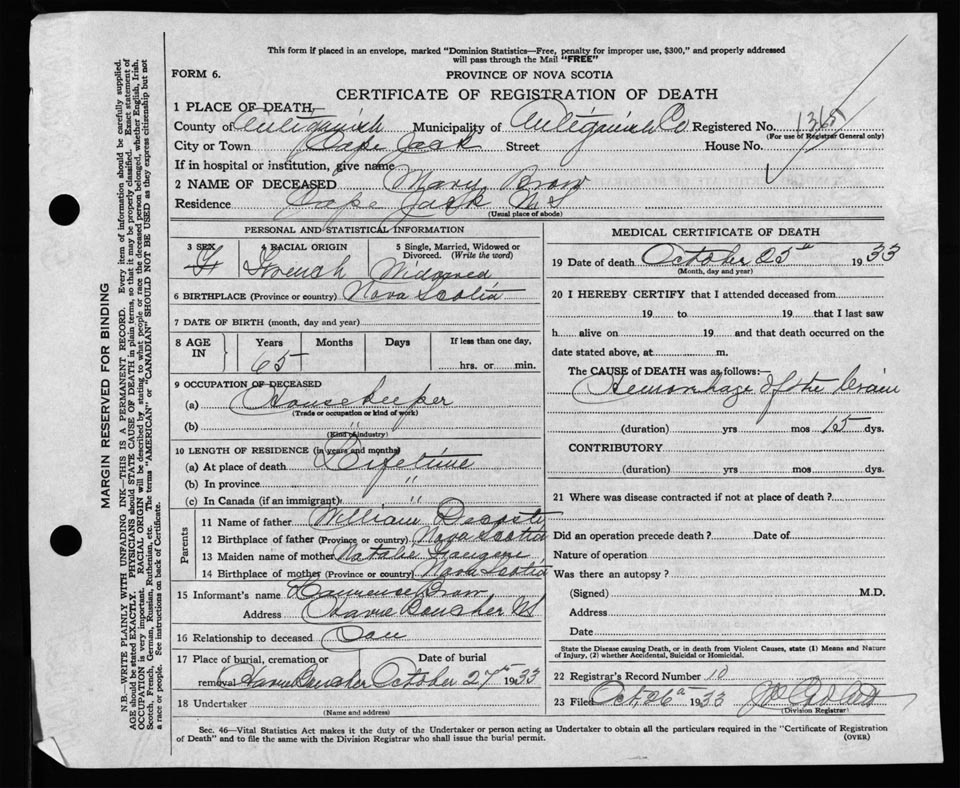 This form if placed in an envelope, marked "Dominion Statistics—Free, penalty for improper use, $300," and properly addressed
will pass through the Mail "FREE"
FORM 6.
PROVINCE OF NOVA SCOTIA
CERTIFICATE OF REGISTRATION OF DEATH
1 PLACE OF DEATH,—
County of Antigonish Municipality of Antigonish Co Registered No. 1365
(For use of Registrar General only)
City or Town Cape Jack Street House No.
If in hospital or institution, give name
2 NAME OF DECEASED Mary Brow
Residence Cape Jack NS
(Usual place of abode)
PERSONAL AND STATISTICAL INFORMATION
3 SEX 4 RACIAL ORIGIN 5 Single, Married, Widowed or Divorced. (Write the word)
F French Widowed
6 BIRTHPLACE (Province or country) Nova Scotia
7 DATE OF BIRTH (month, day and year)
8 AGE IN Years Months Days If less than one day,
65 hrs. or min.
9 OCCUPATION OF DECEASED
(a) Housekeeper
(Trade or occupation or kind of work)
(b) "
(Kind of industry)
10 LENGTH OF RESIDENCE (in years and months)
(a) At place of death Lifetime
(b) In province "
(c) In Canada (if an immigrant) "
Parents
11 Name of father William Decoste
12 Birthplace of father (Province or country) Nova Scotia
13 Maiden name of mother Natalie
14 Birthplace of mother (Province or country) Nova Scotia
15 Informant's name Laurence Brow
Address Havre Boucher NS
16 Relationship to deceased Son
17 Place of burial, cremation or removal Date of burial
Havre Boucher October 27th 1933
18 Undertaker
(Name and address)
MEDICAL CERTIFICATE OF DEATH
19 Date of death October 25th 1933
(Month, day and year)
20 I HEREBY CERTIFY that I attended deceased from
19 to 19 that I last saw
h alive on 19 and that death occurred on the
date stated above, at m.
The CAUSE of DEATH was as follows:—
Hemorrhage of the brain
(duration) yrs mos 15 dys.
CONTRIBUTORY
(duration) yrs mos dys.
21 Where was disease contracted if not at place of death?
Did an operation precede death? Date of
Nature of operation
Was there an autopsy?
(Signed) M.D.
Address
Date
State the Disease causing Death, or in death from Violent Causes, state (1) Means and Nature
of Injury, (2) whether Accidental, Suicidal or Homicidal.
22 Registrar's Record Number 10
23 Filed Oct 26th 1933
(Division Registrar)
Sec. 46—Vital Statistics Act makes it the duty of the Undertaker or person acting as Undertaker to obtain all the particulars required in the "Certificate of Registration
of Death" and to file the same with the Division Registrar who shall issue the burial permit.
(OVER)
MARGIN RESERVED FOR BINDING
N.B.—WRITE PLAINLY WITH UNFADING INK—THIS IS A PERMANENT RECORD. Every item of information should be carefully supplied.
AGE should be stated EXACTLY. PHYSICIANS should STATE CAUSE OF DEATH in plain terms, so that it may be properly classified. Exact statement of
OCCUPATION is very important. RACIAL ORIGIN will be described by stating to what people or race the deceased person belonged, whether English, Irish,
Scotch, French, German, Russian, Ruthenian, etc. The terms "AMERICAN" or "CANADIAN" SHOULD NOT BE USED as they express citizenship but not
a race or people. See instructions on back of Certificate.